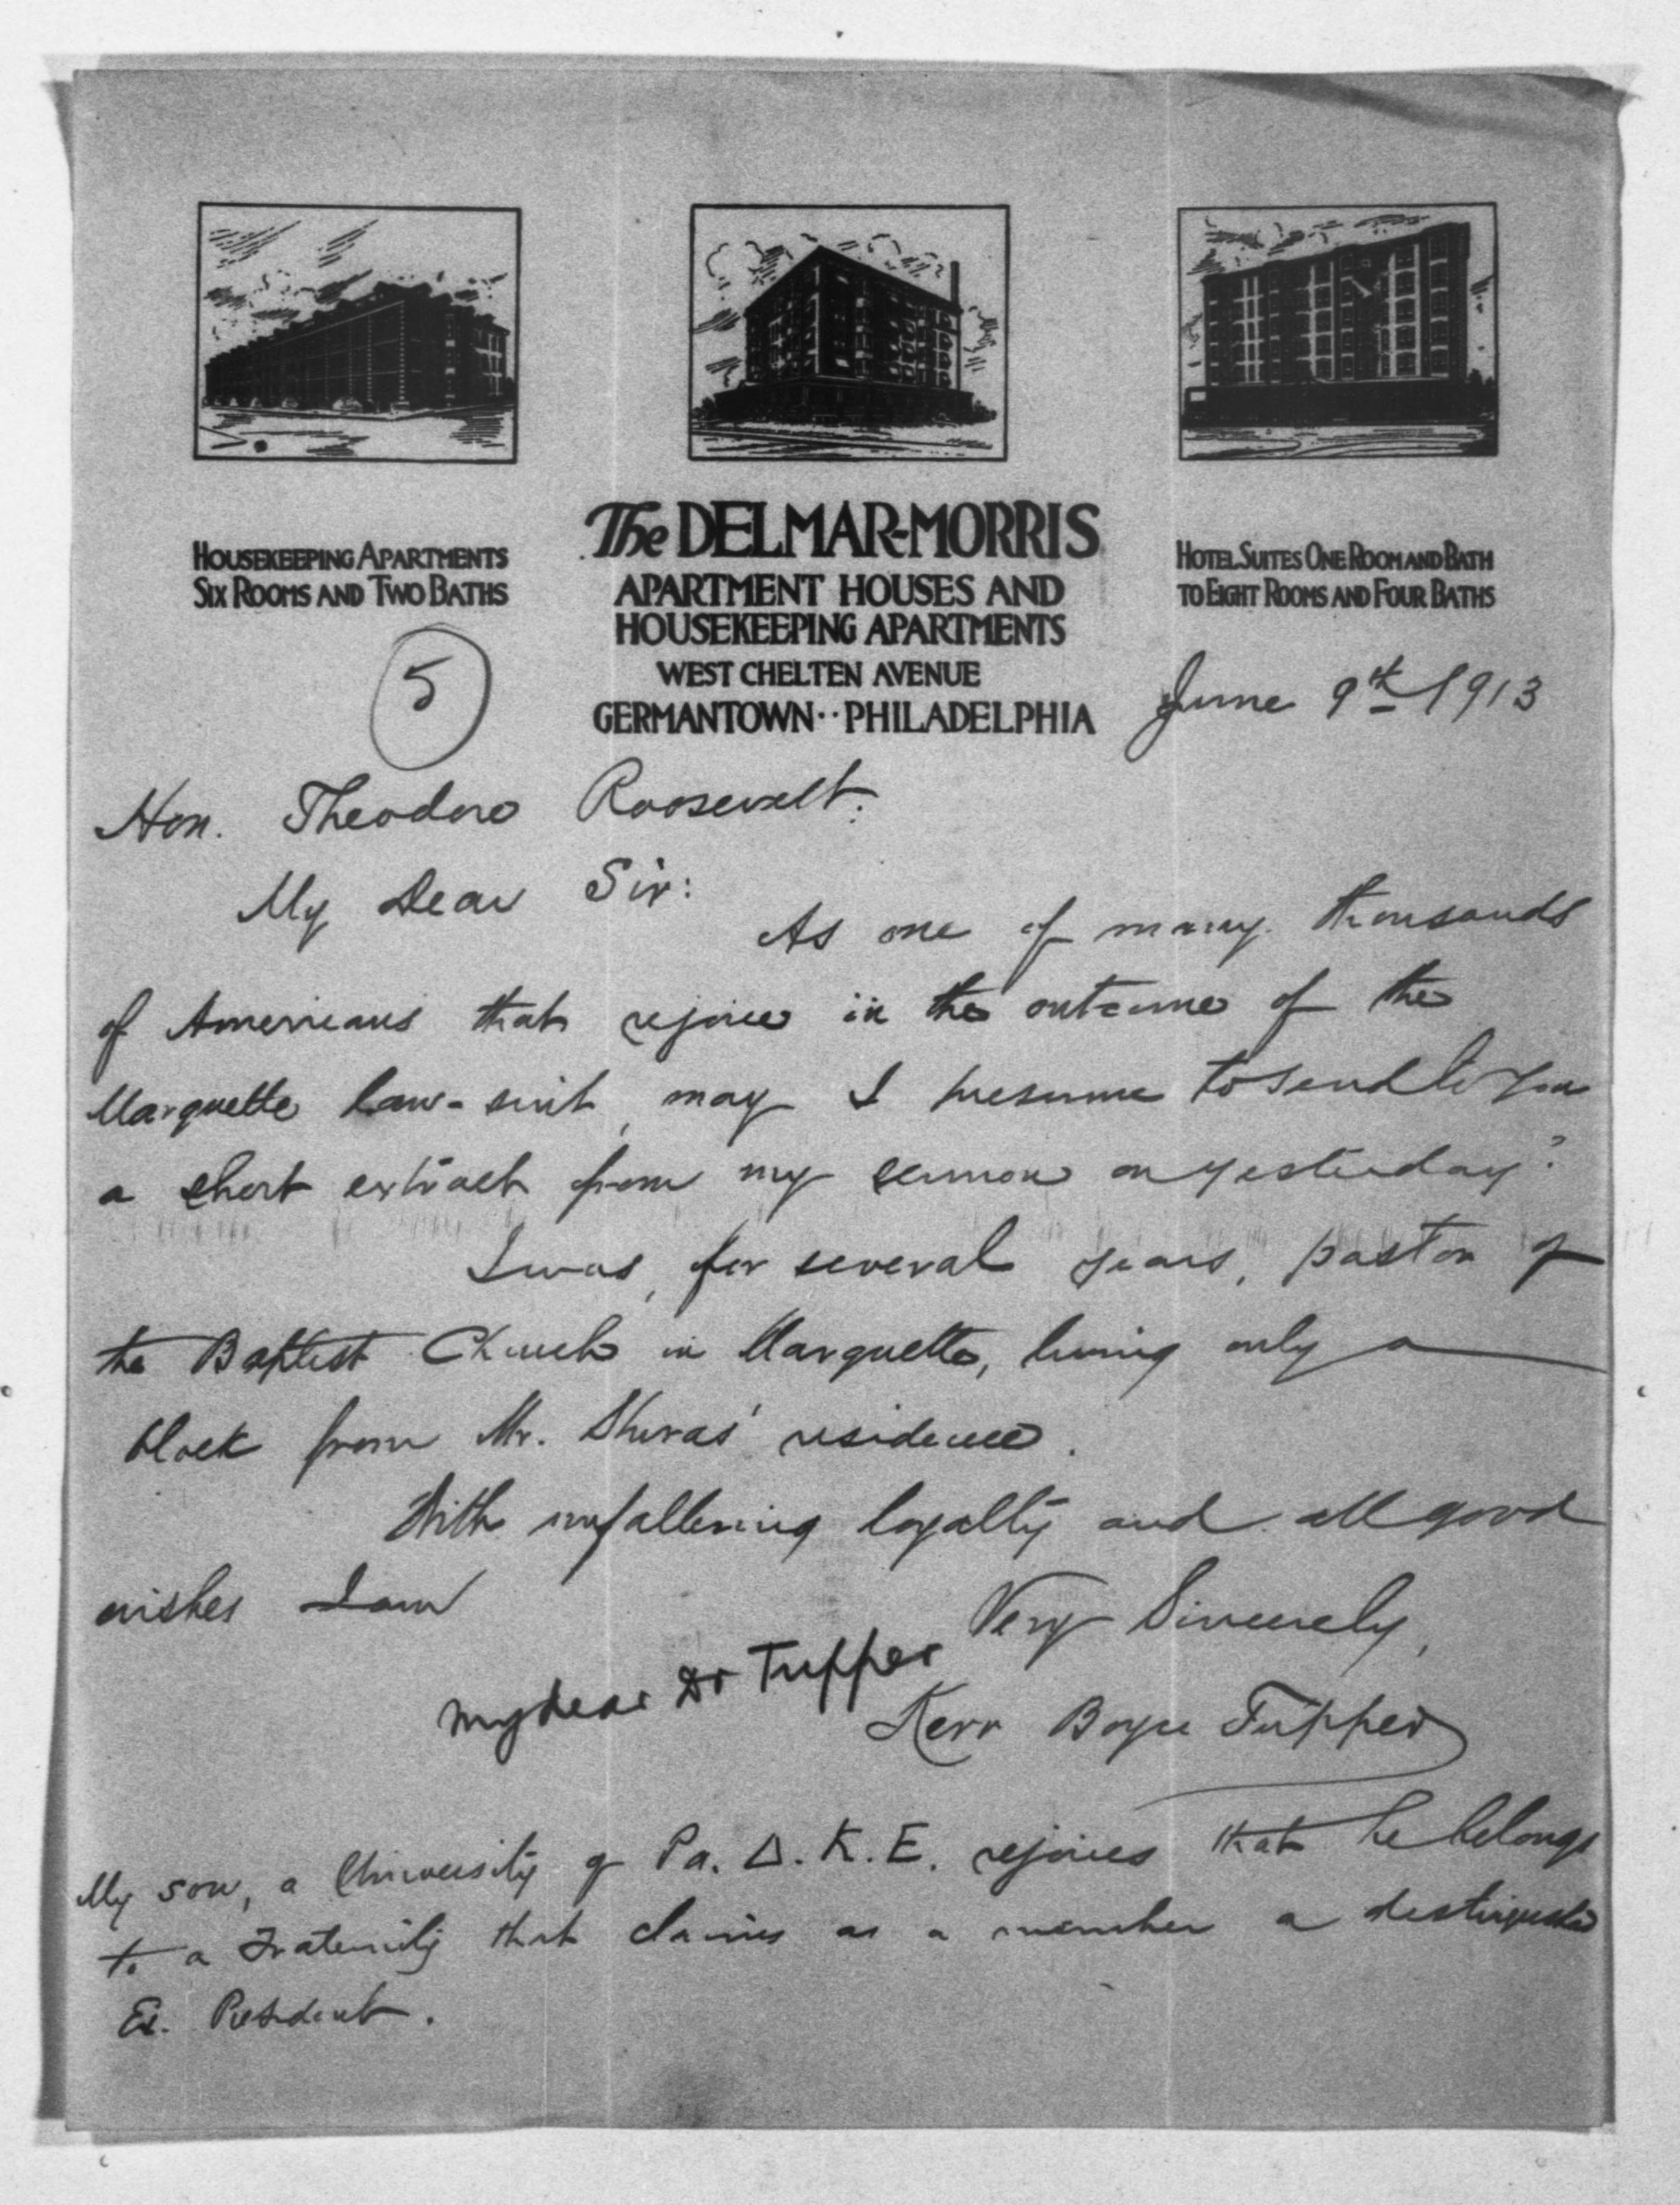 The DELMAR-MORRIS
HOUSEKEEPING APARTMENTS
SIX ROOMS AND TWO BATHS
APARTMENT HOUSES AND
HOUSEKEEPING APARTMENTS
WEST CHELTEN AVENUE
GERMANTOWN·· PHILADELPHIA
HOTEL SUITES ONE ROOM AND BATH
TO EIGHT ROOMS AND FOUR BATHS
5
June 9th 1913
Hon. Theodore Roosevelt:
My Dear Sir:
As one of many thousands
of Americans that rejoice in the outcome of the
Marquette law-suit, may I presume to send to you
a short extract from my sermon on yesterday?
I was, for several years, pastor of
the Baptist Church in Marquette, living only a
block from Mr. Shiras' residence.
With unfaltering loyalty and all good
wishes I am
Very Sincerely,
my dear Dr Tupper
Kerr Boyce Tupper
My son, a University of Pa. Δ. K. E. rejoices that he belongs
to a Fraternity that claims as a member a distinguished
Ex. President.